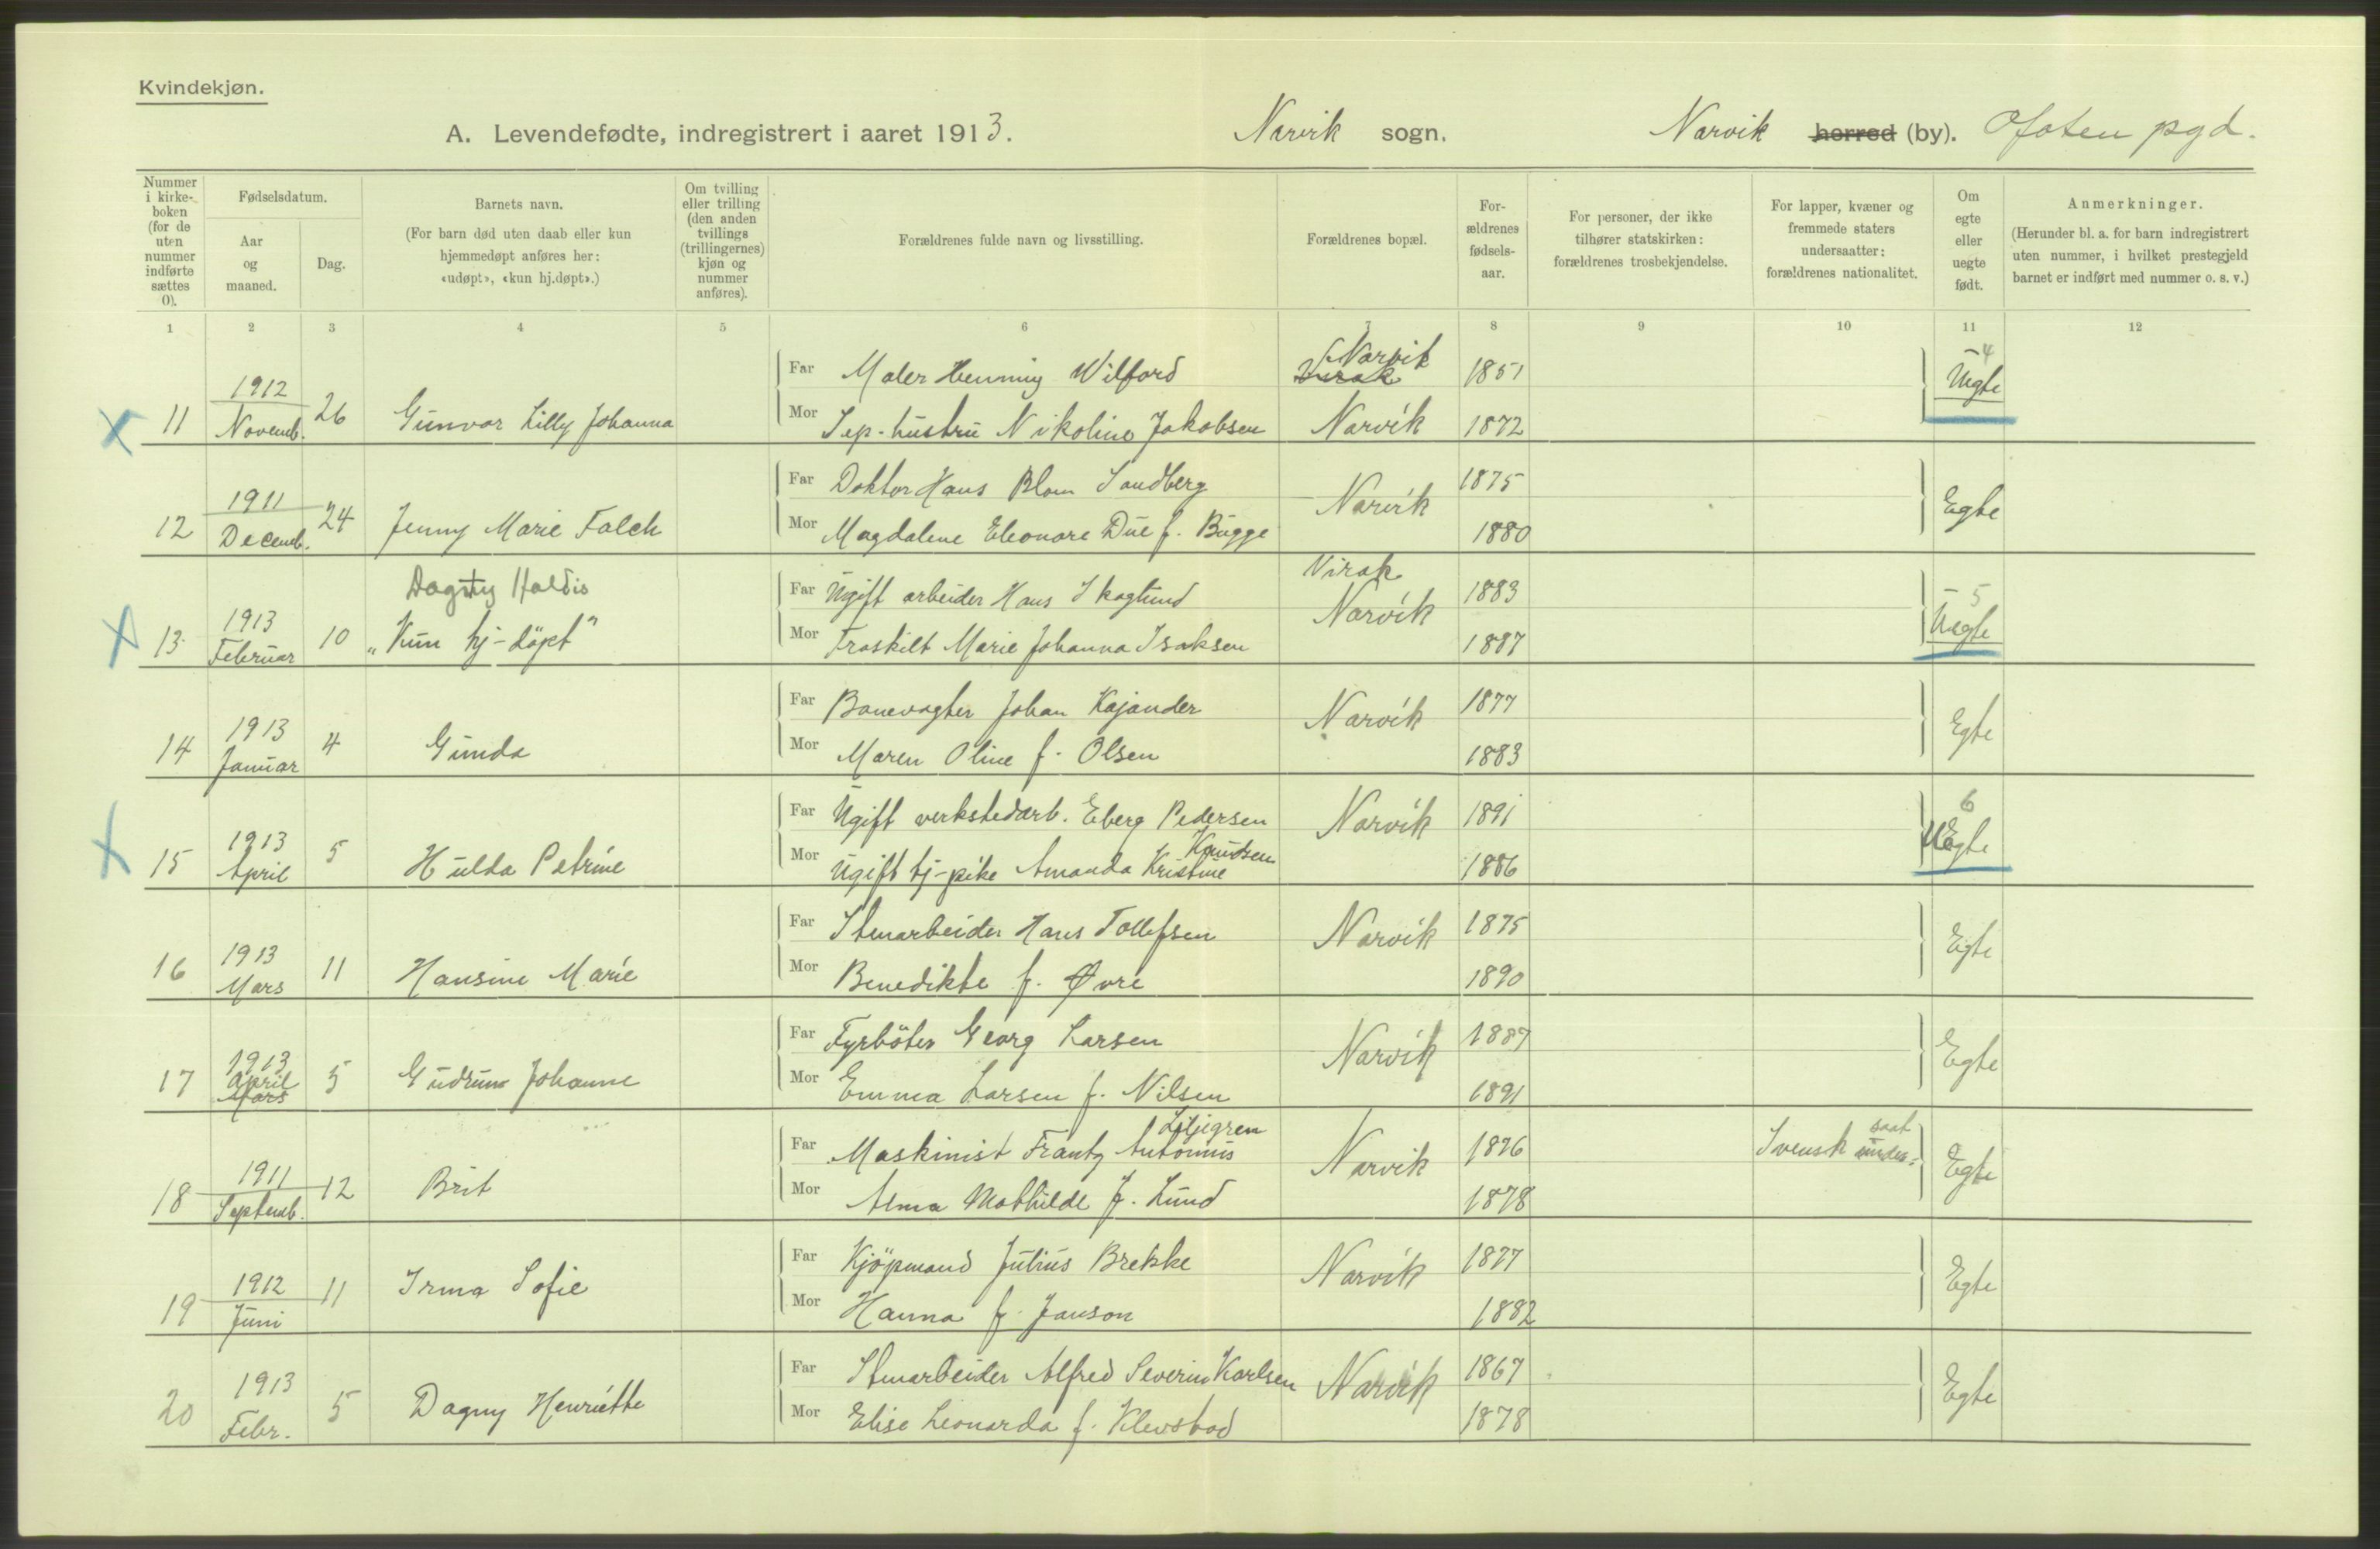 Kvindekjøn.
A. Levendefødte, indregistrert i aaret 1913. Narvik sogn. Narvik herred (by). Ofoten pgd.
Nummer i kirkeboken (for de uten nummer indførte sættes 0).
Fødselsdatum.
Aar og maaned.
Dag.
Barnets navn.
(For barn død uten daab eller kun hjemmedøpt anføres her: «udøpt», «kun hj.døpt».)
Om tvilling eller trilling (den anden tvillings (trillingernes) kjøn og nummer anføres).
Forældrenes fulde navn og livsstilling.
Forældrenes bopæl.
Forældrenes fødselsaar.
For personer, der ikke tilhører statskirken: forældrenes trosbekjendelse.
For lapper, kvæner og fremmede staters undersaatter: forældrenes nationalitet.
Om egte eller uegte født.
Anmerkninger.
(Herunder bl. a. for barn indregistrert uten nummer, i hvilket prestegjeld barnet er indført med nummer o. s. v.)
1 2 3 4 5 6 7 8 9 10 11 12
X 11 1912 Novemb. 26 Gunvor Lilly Johanna
Far Maler Henning Wilford Narvik 1851
Mor Sep. hustru Nikoline Jakobsen Narvik 1872
4 Uegte
12 1911 Decemb. 24 Jenny Marie Falch
Far Doktor Hans Blom Sandberg Narvik 1875
Mor Magdalene Eleonore Due f. Bugge 1880
Egte
X 13 1913 Februar 10 Dagny Haldis
"Kun hj-döpt"
Far Ugift arbeider Hans Skoglund Virak Narvik 1883
Mor Fraskilt Marie Johanna Isaksen 1887
5 Uegte
14 1913 Januar 4 Gunda
Far Banevagter Johan Kajander Narvik 1877
Mor Maren Oline f. Olsen 1883
Egte
X 15 1913 April 5 Hulda Petrine
Far Ugift verkstedarb. Eberg Pedersen Narvik 1891
Mor Ugift tj-pike Amanda Kristine Knudsen 1886
6 UEgte
16 1913 Mars 11 Hansine Marie
Far Stenarbeider Hans Tollefsen Narvik 1875
Mor Benedikte f. Øvre 1890
Egte
17 1913 April Mars 5 Gudrun Johanne
Far Fyrböter Georg Larsen Narvik 1887
Mor Emma Larsen f. Nilsen 1891
Egte
18 1911 Septemb. 12 Brit
Far Maskinist Frantz Antonius Liljegren Narvik 1876 Svensk undersaat
Mor Alma Mathilde f. Lund 1878
Egte
19 1912 Juni 11 Irma Sofie
Far Kjöpmand Julius Brekke Narvik 1877
Mor Hanna f. Janson 1882
Egte
20 1913 Febr. 5 Dagny Henriette
Far Stenarbeider Alfred Severin Karlsen Narvik 1867
Mor Elise Leonarda f. Klevstad 1878
Egte